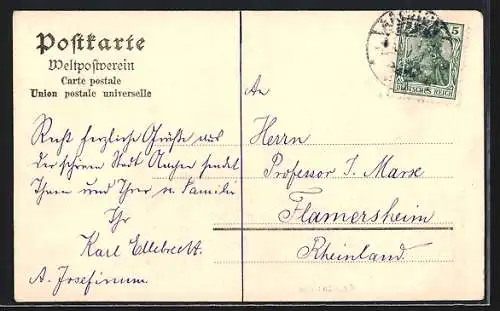 Postkarte
Weltpostverein
Carte postale
Union postale universelle
AACHEN
5
DEUTSCHES REICH
An
Recht herzliche Grüße aus
der schönen Stadt Aachen sendet
Ihnen und Ihrer w. Familie
Ihr
Karl Ellebrecht.
A. Josefinum.
Herrn
Professor J. Marx
Flamersheim
Rheinland.